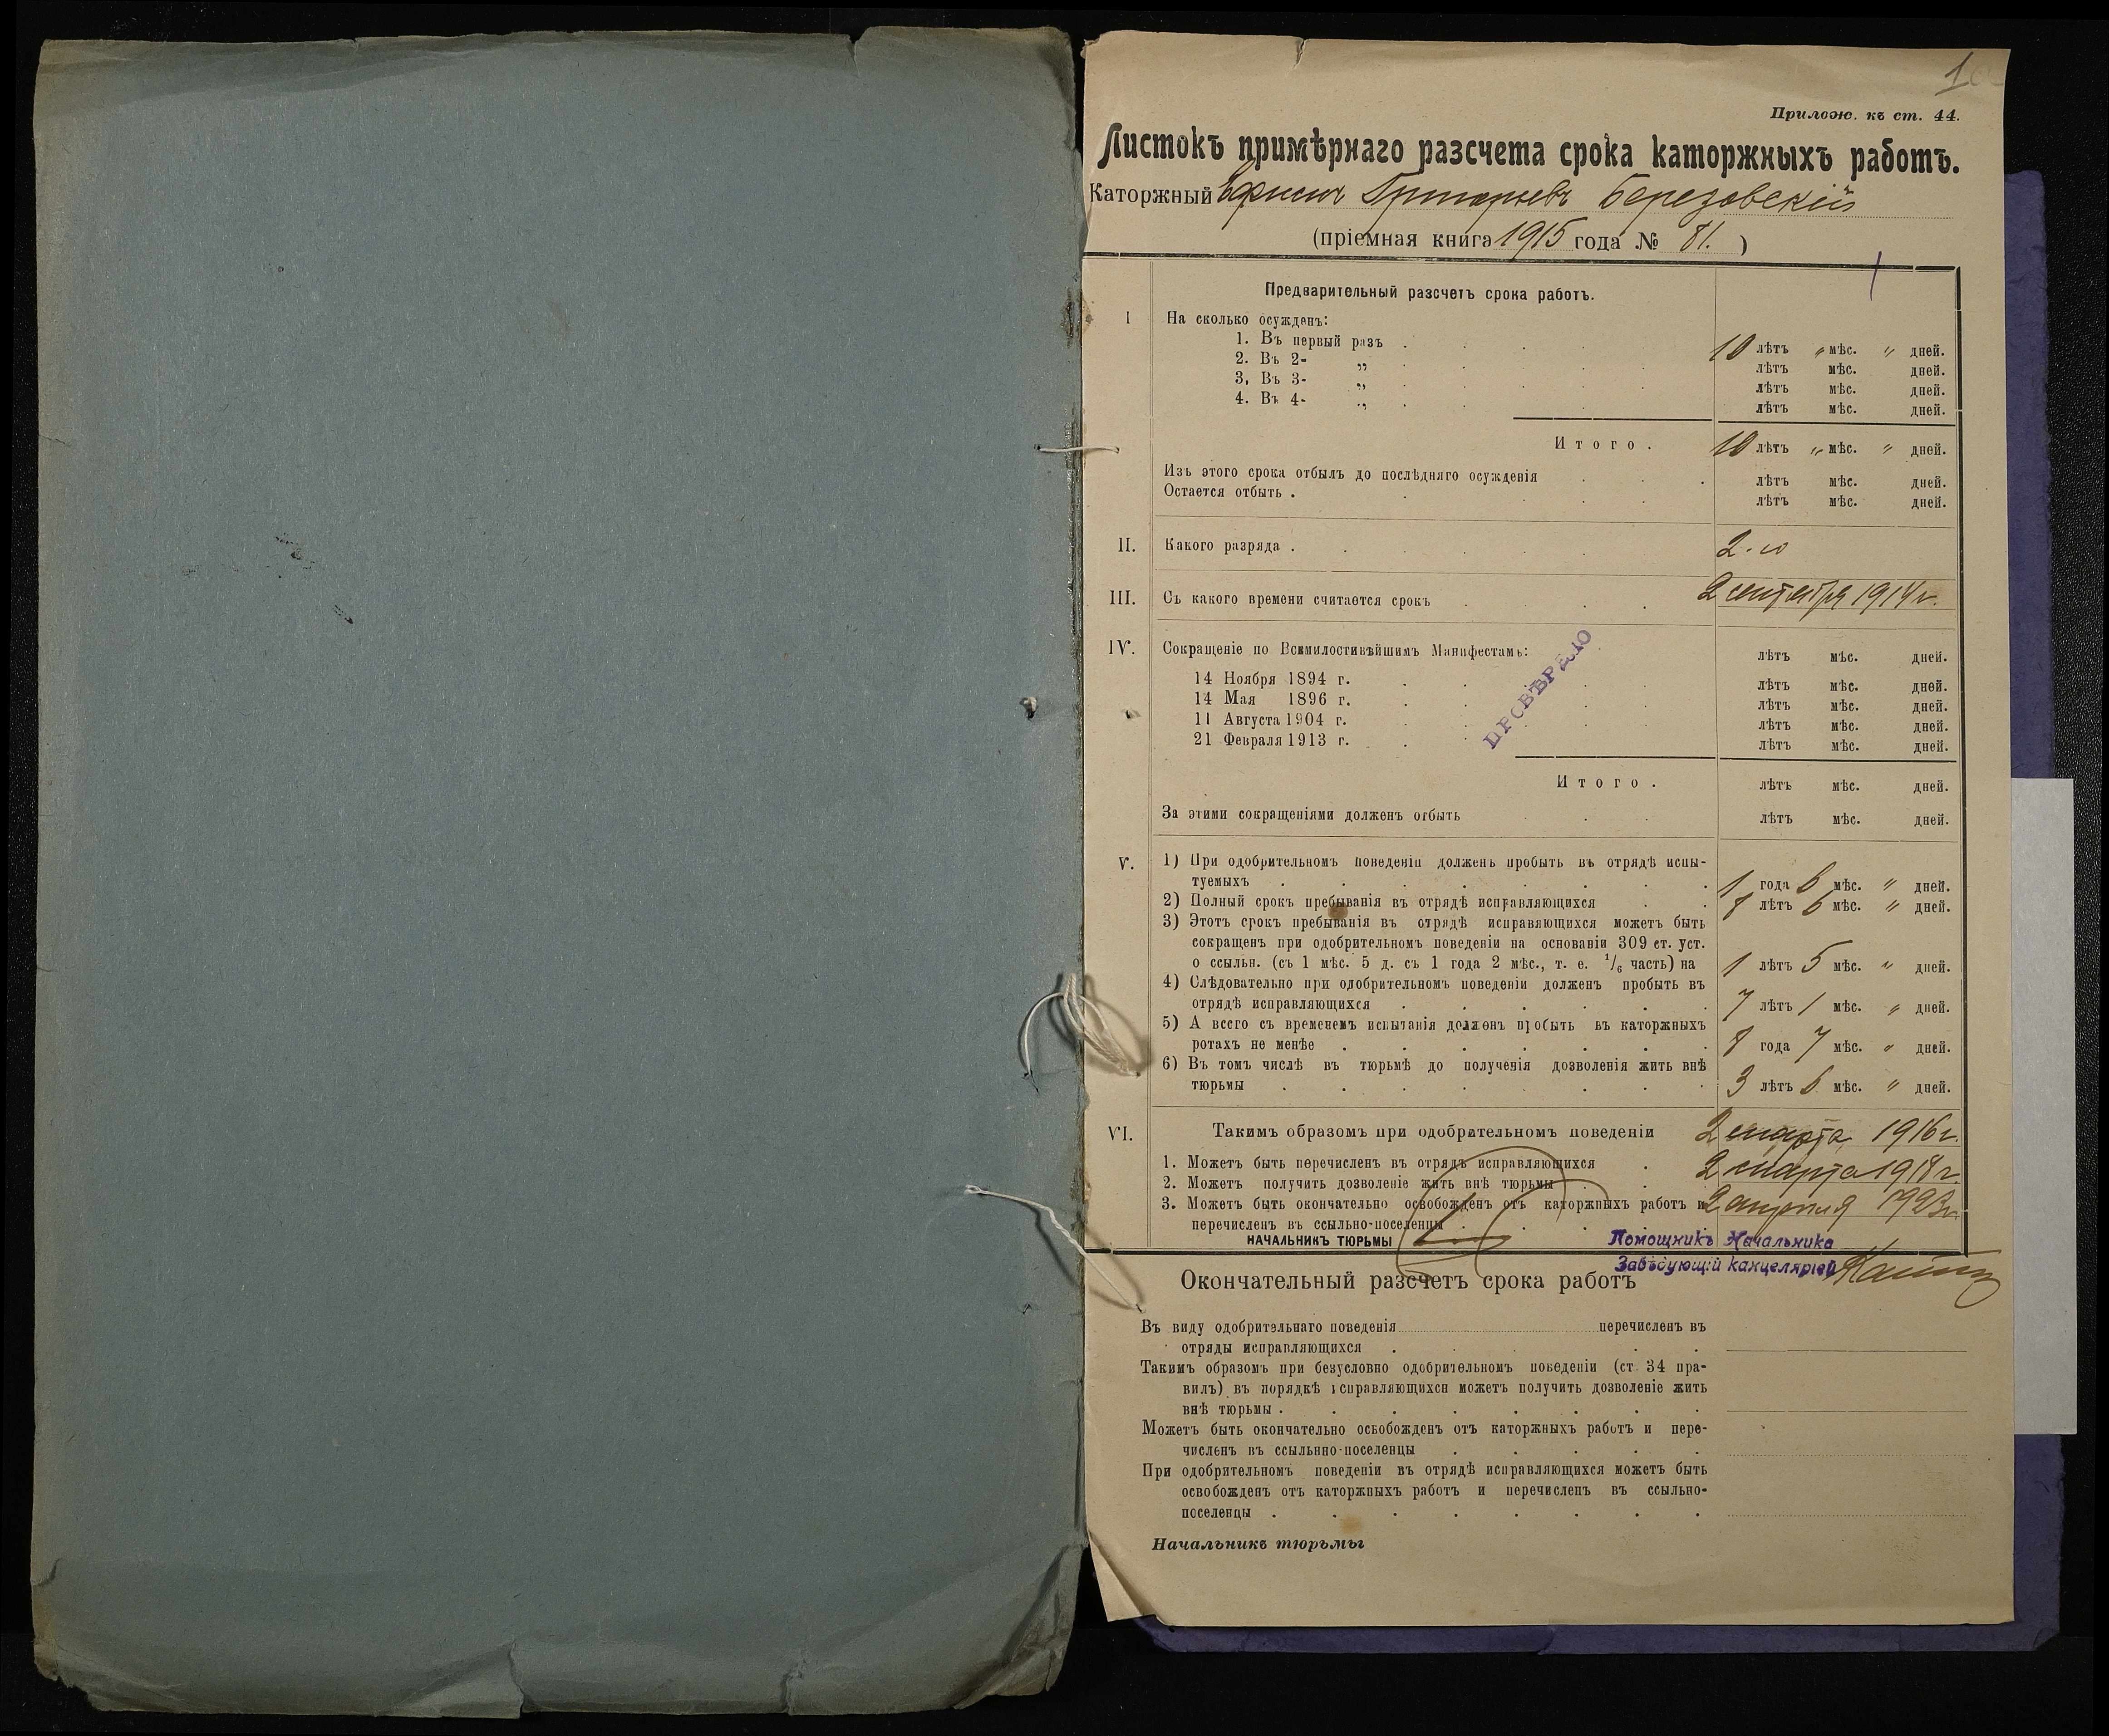 1
Прилож. къ ст. 44.
Листокъ примѣрнаго разсчета срока каторжныхъ работъ.
Каторжный Григорьевъ Березовскій
(пріемная книга 1915 года № 81.)
Предварительный разсчетъ срока работъ.
I На сколько осужденъ:
1. Въ первый разъ . . . . 10 лѣтъ „ мѣс. „ дней.
2. Въ 2- „ . . . . лѣтъ мѣс. дней.
3, Въ 3- „ . . . . лѣтъ мѣс. дней.
4. Въ 4- „ . . . . лѣтъ мѣс. дней.
Итого. 10 лѣтъ „ мѣс. „ дней.
Изъ этого срока отбылъ до послѣдняго осужденія . . . лѣтъ мѣс. дней.
Остается отбыть . . . . . лѣтъ мѣс. дней.
II. Какого разряда . . . . . 2-го
III. Съ какого времени считается срокъ . . . . 2 сентября 1914 г.
IV. Сокращеніе по Всемилостивѣйшимъ Манифестамъ: лѣтъ мѣс. дней.
14 Ноября 1894 г. . . . . лѣтъ мѣс. дней.
14 Мая 1896 г. . . . . лѣтъ мѣс. дней.
11 Августа 1904 г. . . . . лѣтъ мѣс. дней.
21 Февраля 1913 г. . . . лѣтъ мѣс. дней.
ПРОВѢРЕНО
Итого. лѣтъ мѣс. дней.
За этими сокращеніями долженъ отбыть . . лѣтъ мѣс. дней.
V. 1) При одобрительномъ поведеніи долженъ пробыть въ отрядѣ испы-
туемыхъ . . . . . . . . 1 года 6 мѣс. „ дней.
2) Полный срокъ пребыванія въ отрядѣ исправляющихся . . 8 лѣтъ 6 мѣс. „ дней.
3) Этотъ срокъ пребыванія въ отрядѣ исправляющихся можетъ быть
сокращенъ при одобрительномъ поведеніи на основаніи 309 ст. уст.
о ссыльн. (съ 1 мѣс. 5 д. съ 1 года 2 мѣс., т. е. 1/6 часть) на 1 лѣтъ 5 мѣс. „ дней.
4) Слѣдовательно при одобрительномъ поведеніи долженъ пробыть въ
отрядѣ исправляющихся . . . . . . 7 лѣтъ 1 мѣс. „ дней.
5) А всего съ временемъ испытанія долженъ пробыть въ каторжныхъ
ротахъ не менѣе . . . . . . . 8 года 7 мѣс. „ дней.
6) Въ томъ числѣ въ тюрьмѣ до полученія дозволенія жить внѣ
тюрьмы . . . . . . . . 3 лѣтъ 6 мѣс. „ дней.
VI. Такимъ образомъ при одобрительномъ поведеніи 2 марта 1916 г.
1. Можетъ быть перечисленъ въ отрядъ исправляющихся . 2 марта 1918 г.
2. Можетъ получить дозволеніе жить внѣ тюрьмы . . .
3. Можетъ быть окончательно освобожденъ отъ каторжныхъ работъ и 2 апрѣля 1923 г.
перечисленъ въ ссыльно-поселенцы . . . . .
НАЧАЛЬНИКЪ ТЮРЬМЫ
Помощникъ Начальника
Завѣдующій канцеляріей
Окончательный разсчетъ срока работъ
Въ виду одобрительнаго поведенія перечисленъ въ
отряды исправляющихся . . . . . .
Такимъ образомъ при безусловно одобрительномъ поведеніи (ст. 34 пра-
вилъ) въ порядкѣ исправляющихся можетъ получить дозволеніе жить
внѣ тюрьмы . . . . . . . . .
Можетъ быть окончательно освобожденъ отъ каторжныхъ работъ и пере-
численъ въ ссыльнно-поселенцы . . . . .
При одобрительномъ поведеніи въ отрядѣ исправляющихся можетъ быть
освобожденъ отъ каторжныхъ работъ и перечисленъ въ ссыльно-
поселенцы . . . . . . . .
Начальникъ тюрьмы